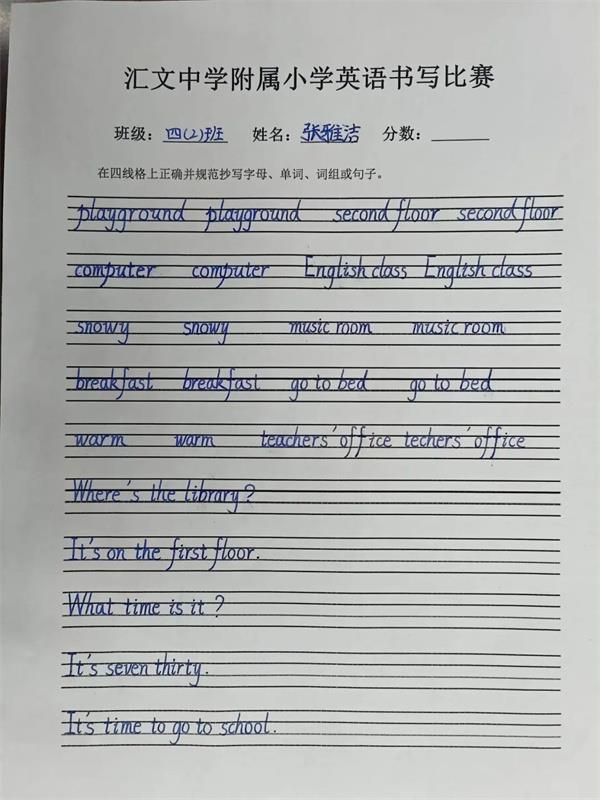 汇文中学附属小学英语书写比赛
班级：四(2)班 姓名：张雅洁 分数：
在四线格上正确并规范抄写字母、单词、词组或句子。
playground playground second floor second floor
computer computer English class English class
snowy snowy music room music room
breakfast breakfast go to bed go to bed
warm warm teachers' office techers' office
Where's the library?
It's on the first floor.
What time is it?
It's seven thirty.
It's time to go to school.